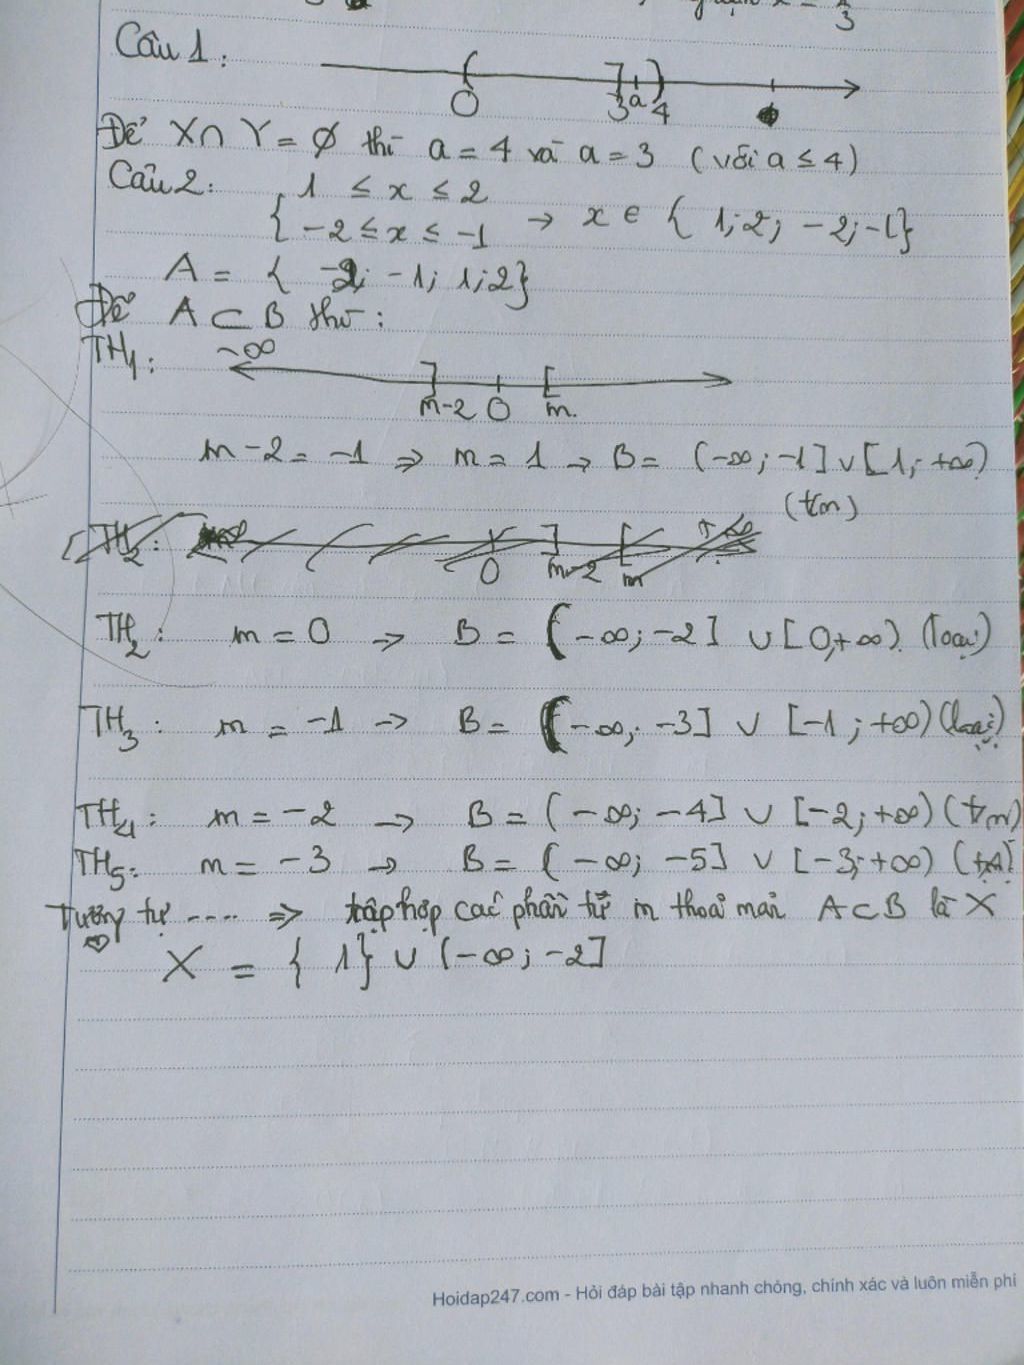 Câu 1:
0 3 a 4
Để X ∩ Y = ∅ thì a = 4 và a = 3 (với a ≤ 4)
Câu 2: { 1 ≤ x ≤ 2
-2 ≤ x ≤ -1 → x ∈ { 1; 2; -2; -1}
A = { -2; -1; 1; 2}
Để A ⊂ B thì:
TH1: -∞
m-2 0 m
m - 2 = -1 ⇒ m = 1 → B = (-∞; -1] ∪ [1; +∞)
(tm)
TH2:
0 m-2 m
TH2: m = 0 → B = (-∞; -2] ∪ [0,+∞). (loại)
TH3: m = -1 → B = (-∞; -3] ∪ [-1; +∞) (loại)
TH4: m = -2 → B = (-∞; -4] ∪ [-2; +∞) (tm)
TH5: m = -3 → B = (-∞; -5] ∪ [-3; +∞)
Tương tự .... ⇒ tập hợp các phần tử m thoả mãn A ⊂ B là X
X = { 1} ∪ (-∞; -2]
Hoidap247.com - Hỏi đáp bài tập nhanh chóng, chính xác và luôn miễn phí